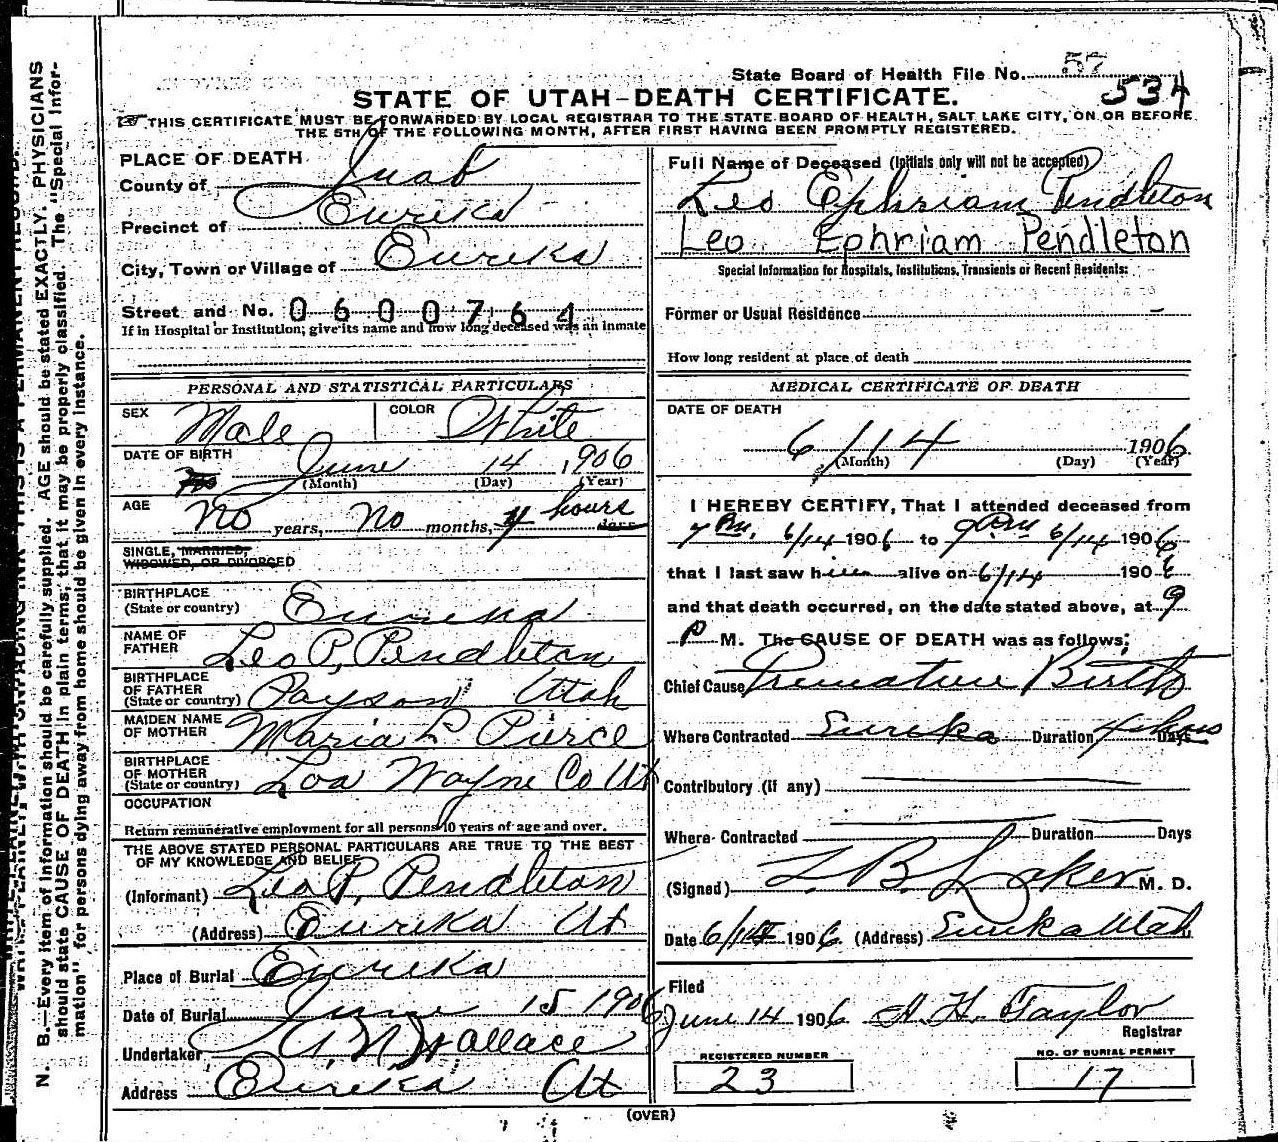 State Board of Health File No. 57
534
STATE OF UTAH-DEATH CERTIFICATE.
THIS CERTIFICATE MUST BE FORWARDED BY LOCAL REGISTRAR TO THE STATE BOARD OF HEALTH, SALT LAKE CITY, ON OR BEFORE
THE 5TH OF THE FOLLOWING MONTH, AFTER FIRST HAVING BEEN PROMPTLY REGISTERED.
PLACE OF DEATH
County of Juab
Precinct of Eureka
City, Town or Village of Eureka
Street and No. 0600764
If in Hospital or Institution; give its name and how long deceased was an inmate
PERSONAL AND STATISTICAL PARTICULARS
SEX Male COLOR White
DATE OF BIRTH June 14, 1906
(Month) (Day) (Year)
AGE No years, No months, 4 hours days
SINGLE, MARRIED,
WIDOWED, OR DIVORCED
BIRTHPLACE
(State or country) Eureka
NAME OF
FATHER Leo P. Pendleton
BIRTHPLACE
OF FATHER
(State or country) Payson Utah
MAIDEN NAME
OF MOTHER Maria L Pierce
BIRTHPLACE
OF MOTHER
(State or country) Loa Wayne Co Ut
OCCUPATION
Return remunerative employment for all persons 10 years of age and over.
THE ABOVE STATED PERSONAL PARTICULARS ARE TRUE TO THE BEST
OF MY KNOWLEDGE AND BELIEF
(Informant) Leo P. Pendleton
(Address) Eureka Ut
Place of Burial Eureka
Date of Burial June 15 1906
Undertaker A. N. Wallace
Address Eureka Ut
Full Name of Deceased (Initials only will not be accepted)
Leo Ephriam Pendleton
Leo Ephriam Pendleton
Special Information for Hospitals, Institutions, Transients or Recent Residents:
Former or Usual Residence –
How long resident at place of death
MEDICAL CERTIFICATE OF DEATH
DATE OF DEATH
6/14 1906
(Month) (Day) (Year)
I HEREBY CERTIFY, That I attended deceased from
7 6/14 1906 to 9 6/14 1906
that I last saw him alive on 6/14 1906
and that death occurred, on the date stated above, at 9
P M. The CAUSE OF DEATH was as follows:
Chief Cause Premature Birth
Where Contracted Eureka Duration 4 hrs Days
Contributory (if any)
Where Contracted Duration Days
(Signed) B. Laker M. D.
Date 6/14 1906. (Address) Eureka Utah
Filed
June 14 1906 A. H. Taylor
Registrar
REGISTERED NUMBER
23
NO. OF BURIAL PERMIT
17
(OVER)
N. B.—Every item of information should be carefully supplied. AGE should be stated EXACTLY. PHYSICIANS
should state CAUSE OF DEATH in plain terms; that it may be properly classified. The "Special Infor-
mation" for persons dying away from home should be given in every instance.